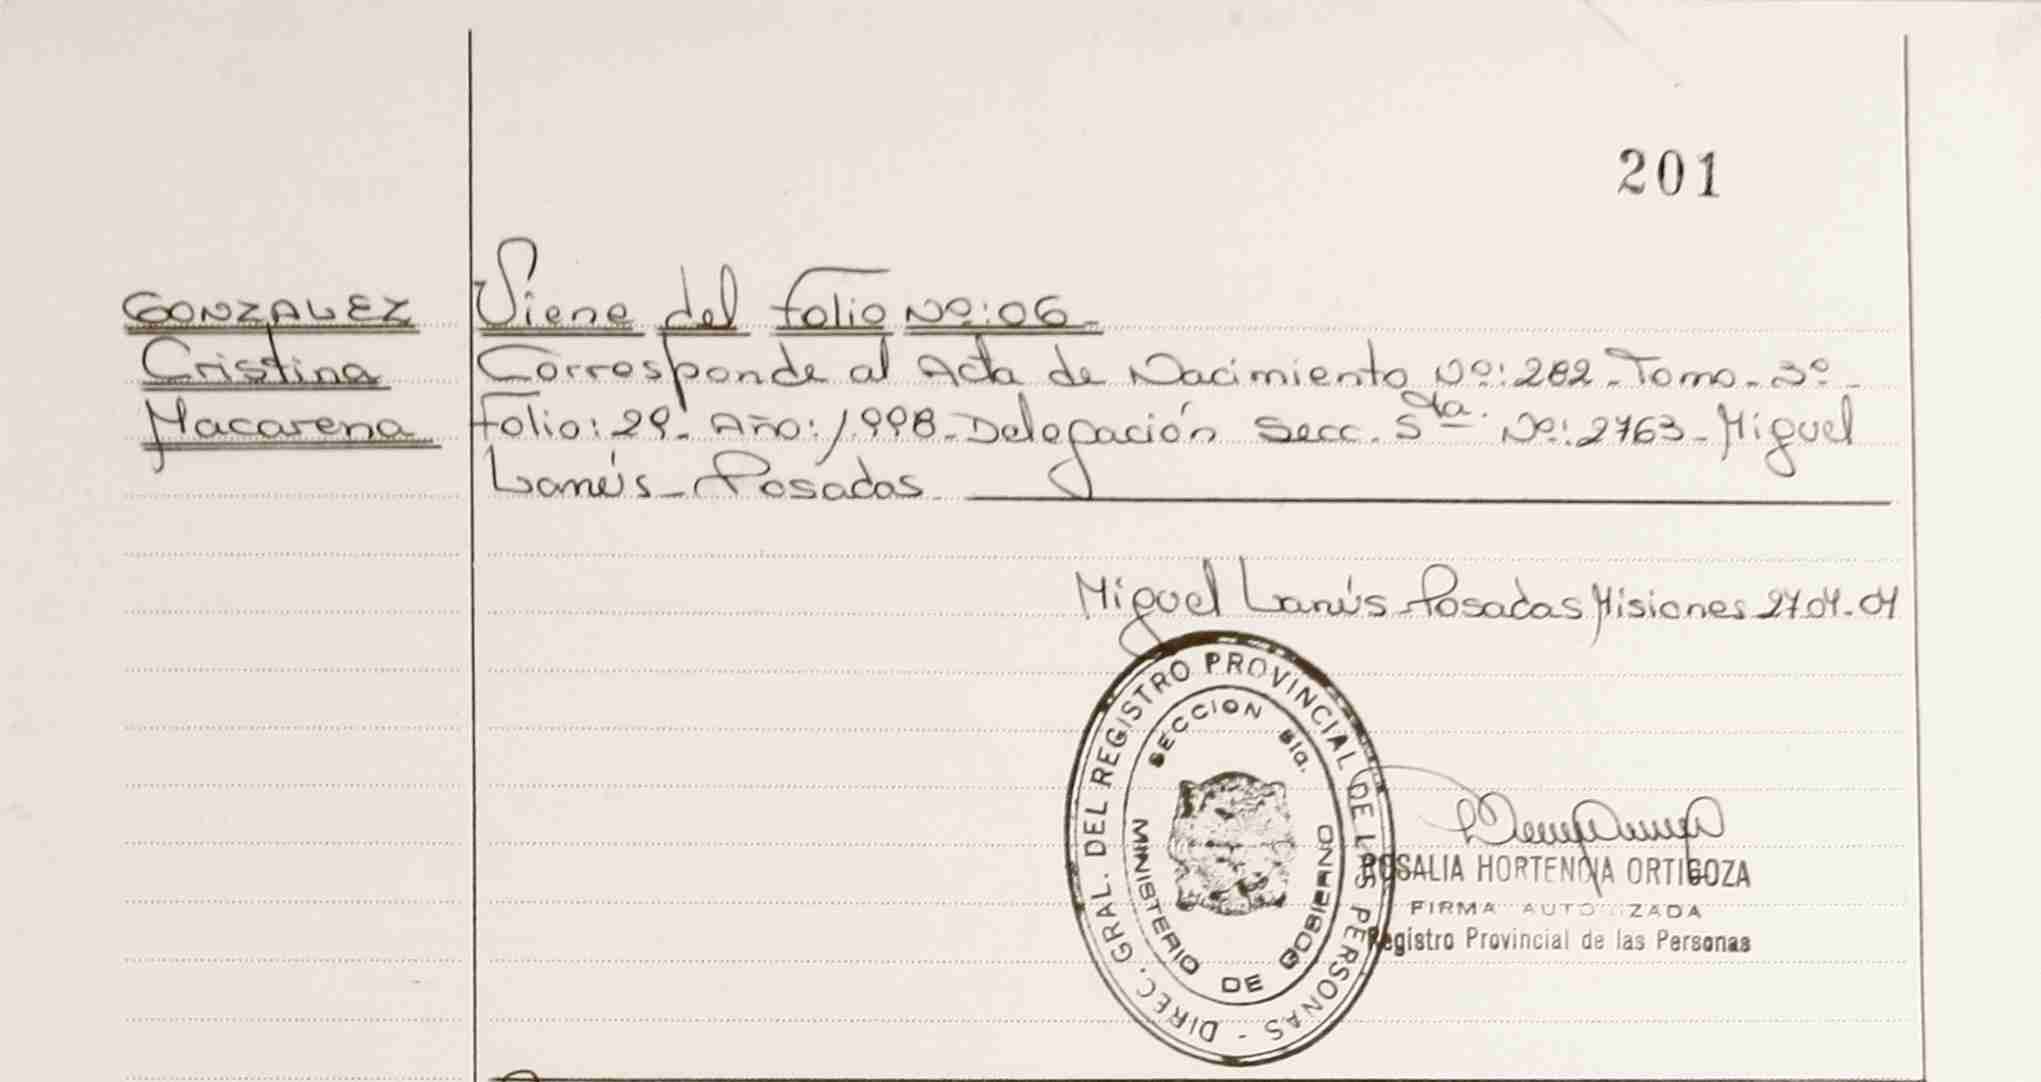 201
GONZALEZ
Cristina
Macarena
Viene del folio Nº:06
Corresponde al Acta de Nacimiento Nº:282-Tomo-3º-
Folio:29-Año:1998-Delegación Secc. 5ta. Nº:2763-Miguel
Lanús-Posadas
Miguel Lanús-Posadas Misiones 27.04.04
DIREC. GRAL. DEL REGISTRO PROVINCIAL DE LAS PERSONAS -
SECCION 5ta.
MINISTERIO DE GOBIERNO
ROSALIA HORTENCIA ORTIGOZA
FIRMA AUTORIZADA
Registro Provincial de las Personas